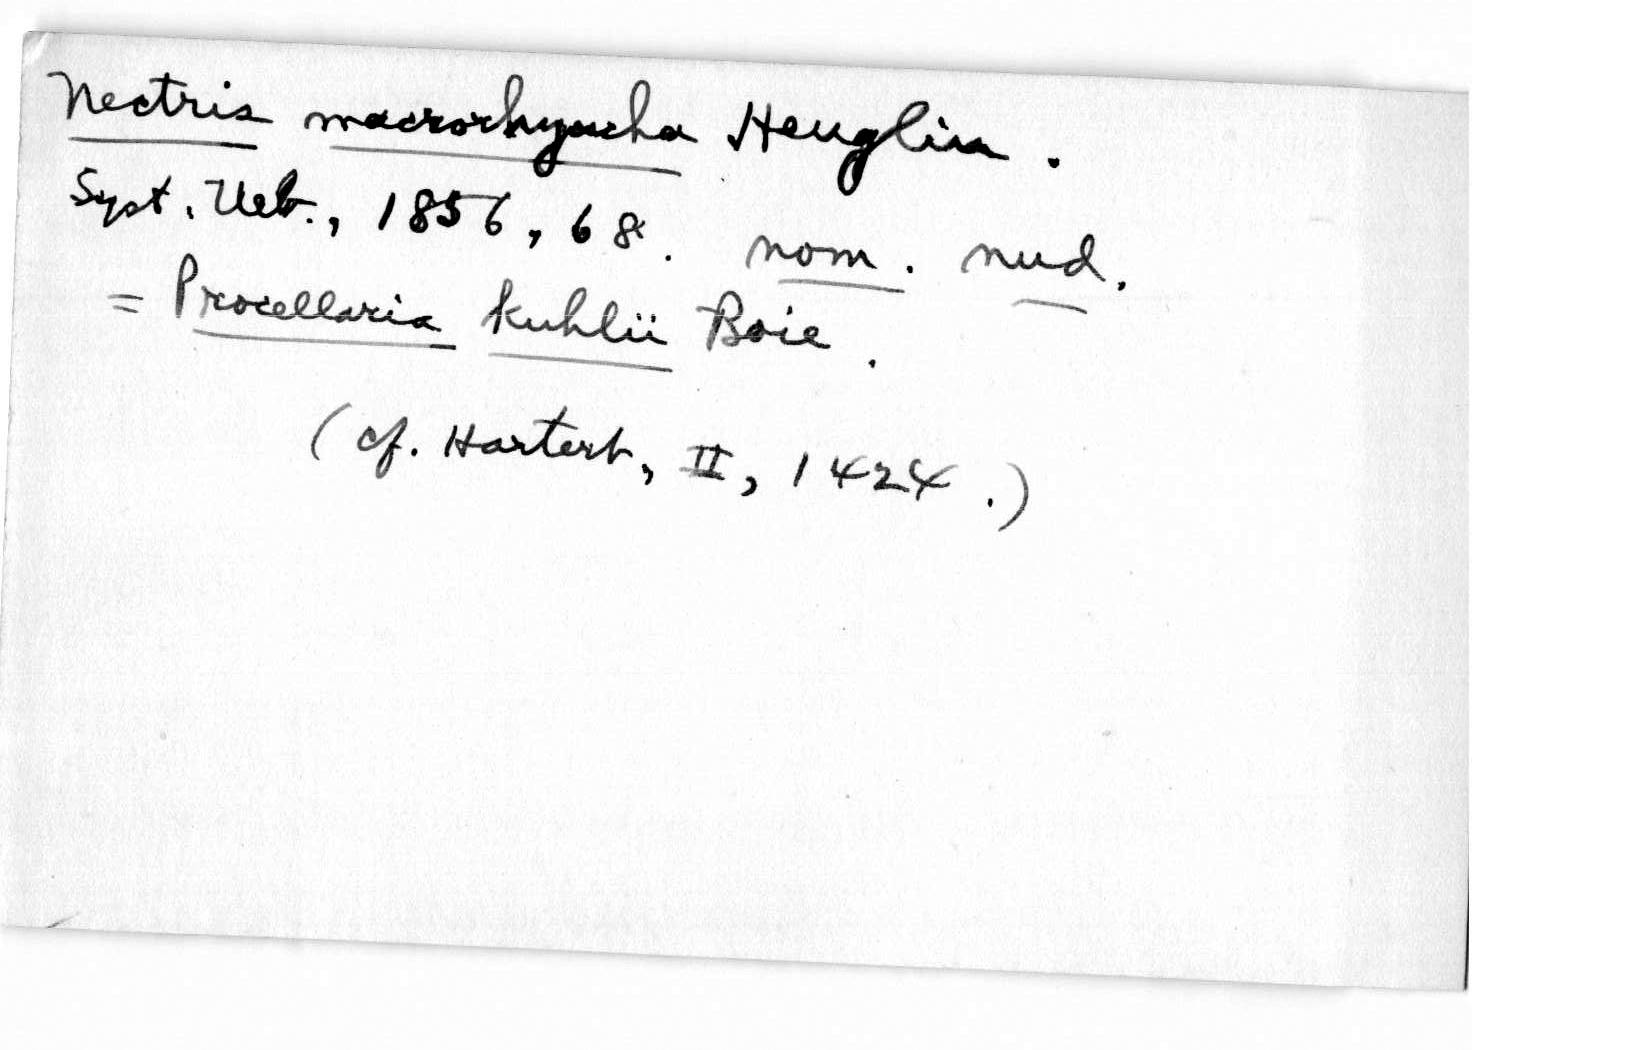 Nectris macrorhyncha Heuglin.
Syst. Ueb., 1856, 68. nom. nud.
= Procellaria kuhlii Boie.
(cf. Hartert, II, 1424.)